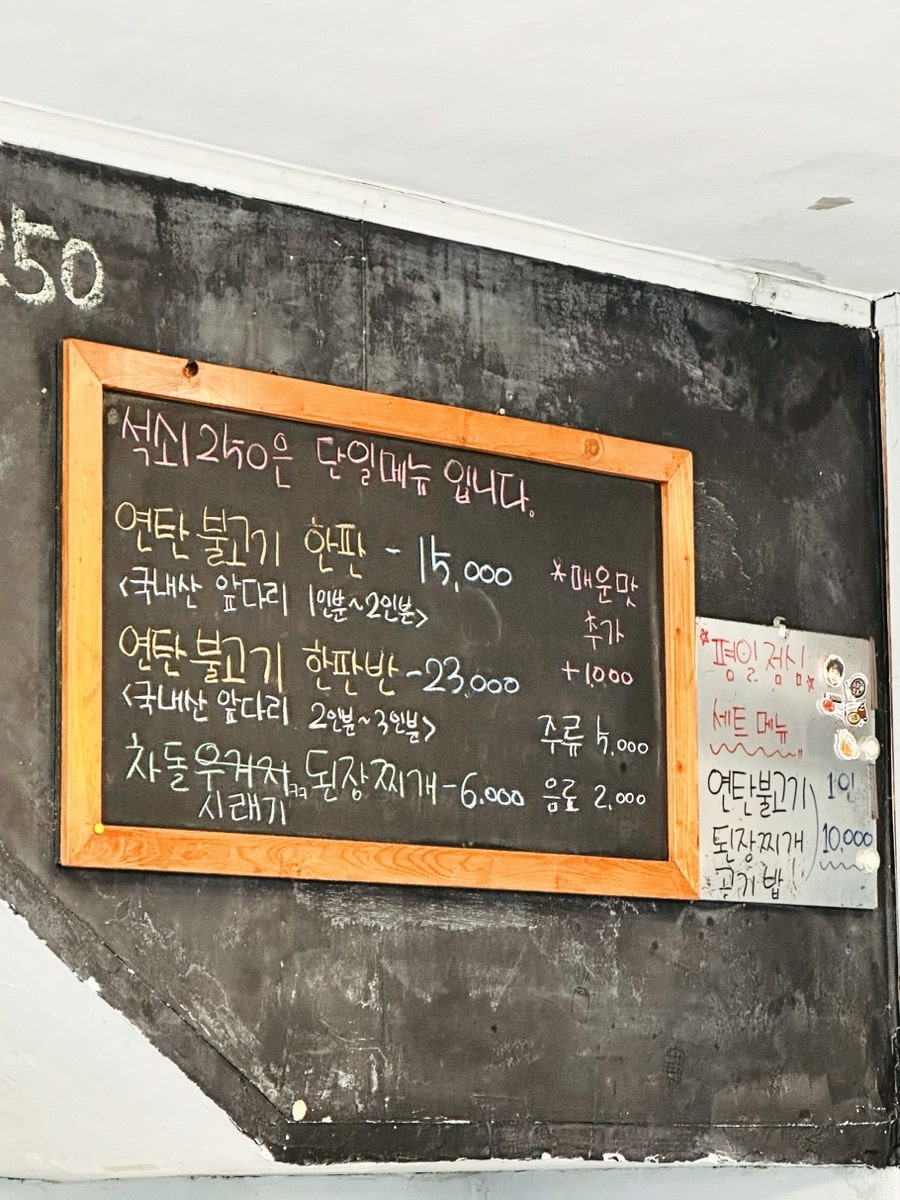 250
석쇠250은 단일메뉴 입니다.
연탄불고기 한판 - 15,000
<국내산 앞다리 1인분~2인분>
연탄불고기 한판반-23,000
<국내산 앞다리 2인분~3인분>
차돌우거지 된장찌개-6,000
시래기ㅋㅋ
*매운맛
추가
+1,000
주류 5,000
음료 2,000
*평일점심*
세트메뉴
연탄불고기 1인
된장찌개 10,000
공기밥